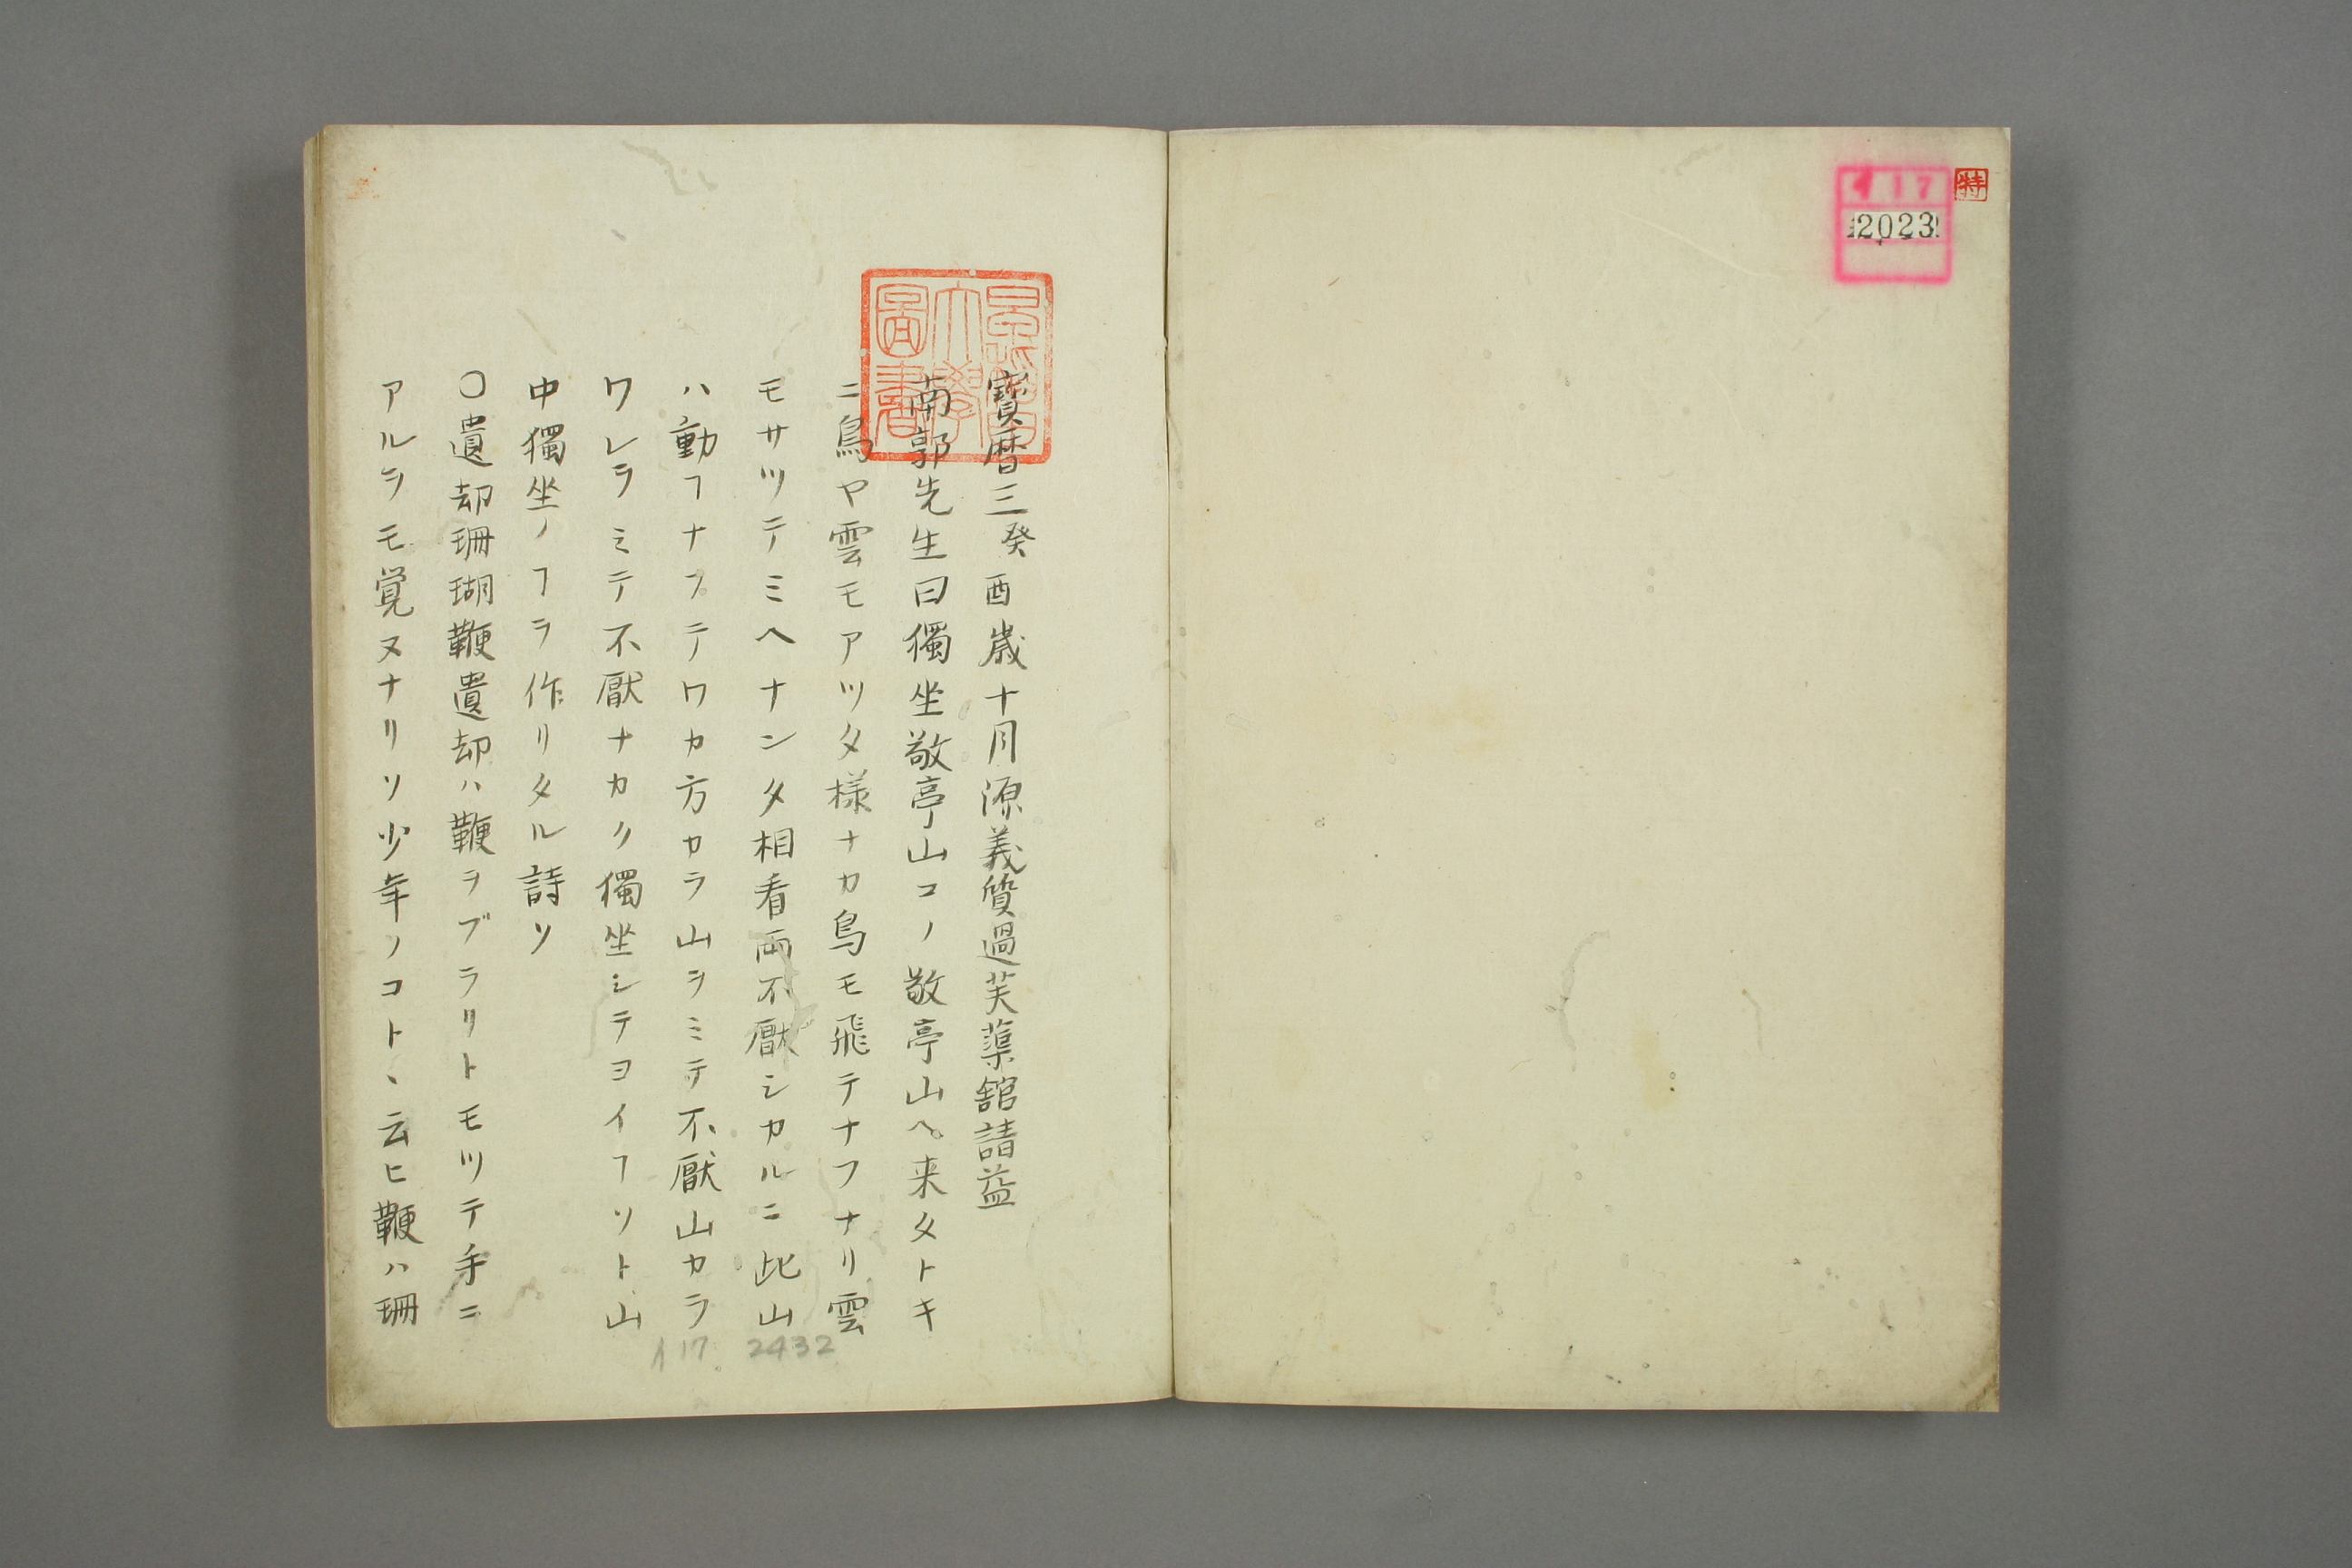 特
イ17
2023
寶暦三癸酉歳十月源義質過芙蕖舘請益
南郭先生曰獨坐敬亭山コノ敬亭山ヘ来タトキ
ニ鳥ヤ雲モアツタ様ナカ鳥モ飛テナフナリ雲
モサツテミヘナンタ相看両不厭シカルニ此山
ハ動フナフテワカ方カラ山ヲミテ不厭山カラ
ワレヲミテ不厭ナカク獨坐シテヨイフソト山
中獨坐ノフヲ作リタル詩ソ
〇遺却珊瑚鞭遺却ハ鞭ヲブラリトモツテ手ニ
アルヲモ覚ヌナリソ少年ノコト、云ヒ鞭ハ珊
イ17 2432